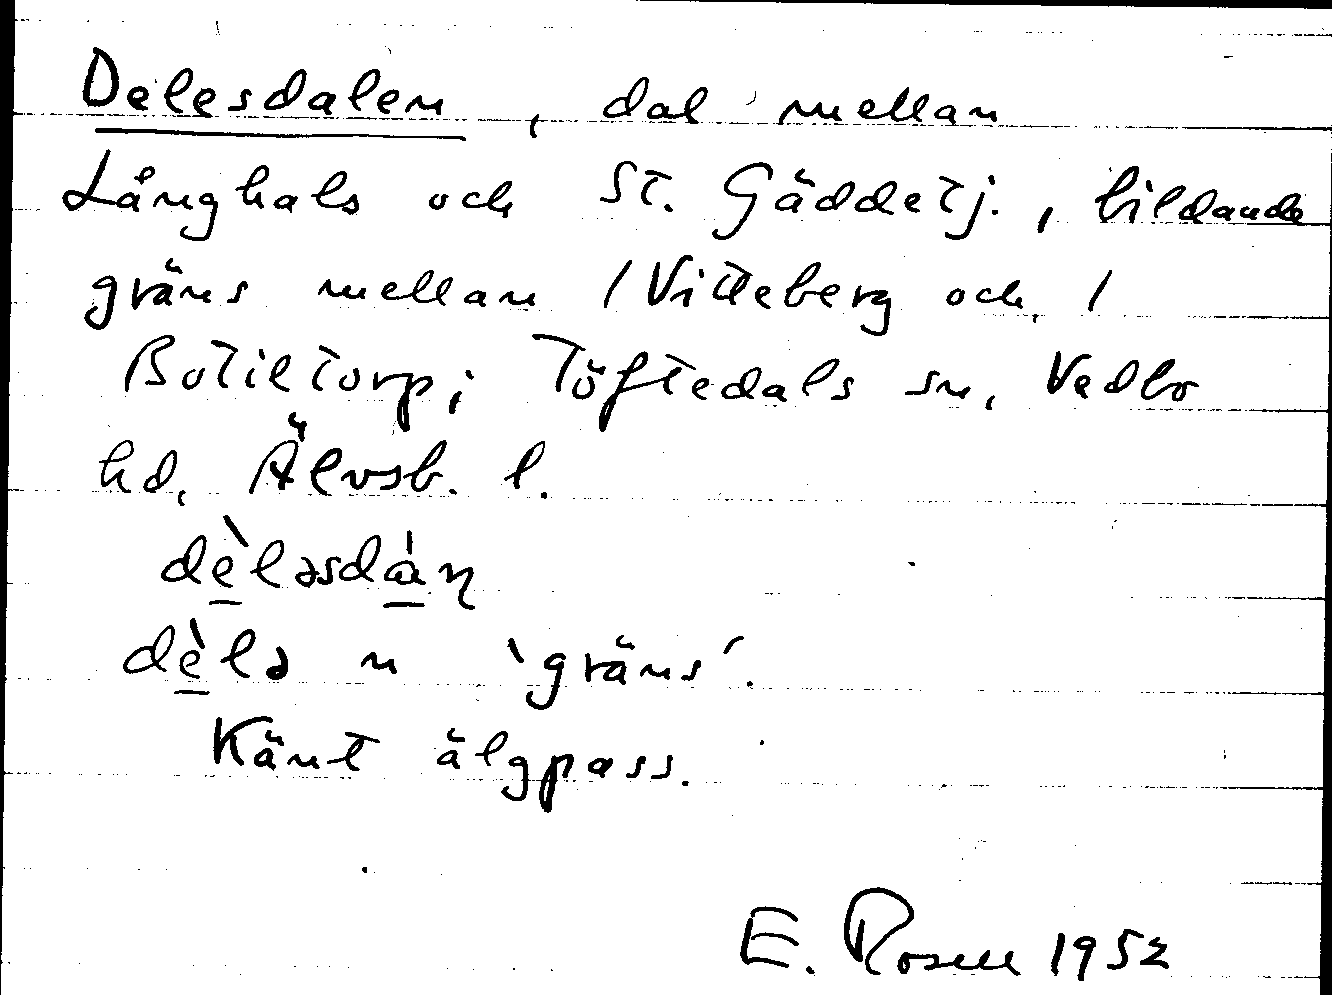 Delesdalen, dal mellan
Långhals och St. Gäddetj., bildande
gräns mellan /Vitteberg och /
Botiltorp; Töftedals sn, Vedbo
hd, Älvsb. l.
dè̱ləsdà̱ɳ
dè̱lə n 'gräns'.
Känt älgpass.
E. Rosell 1952